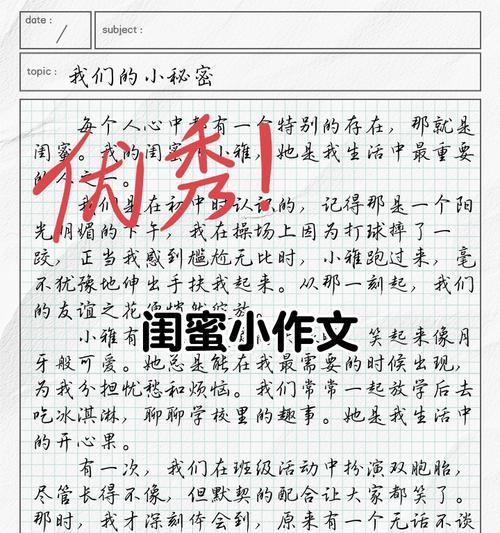 date :
subject :
topic : 我们的小秘密
每个人心中都有一个特别的存在，那就是
闺蜜。我的闺蜜 小雅，她是我生活中最重要
的 之一。
优秀！
我们是在初中时认识的，记得那是一个阳
光明媚的下午，我在操场上因为打球摔了一
跤，正当我感到尴尬无比时，小雅跑过来，毫
不犹豫地伸出手扶我起来。从那一刻起，我们
的友谊之花
闺蜜小作文
小雅有 笑起来像月
牙般可爱。她总是能在我最需要的时候出现，
为我分担忧愁和烦恼。我们常常一起放学后去
吃冰淇淋，聊聊学校里的趣事。她是我生活中
的开心果。
有一次，我们在班级活动中扮演双胞胎，
尽管长得不像，但默契的配合让大家都笑了。
那时，我才深刻体会到，原来有一个无话不谈